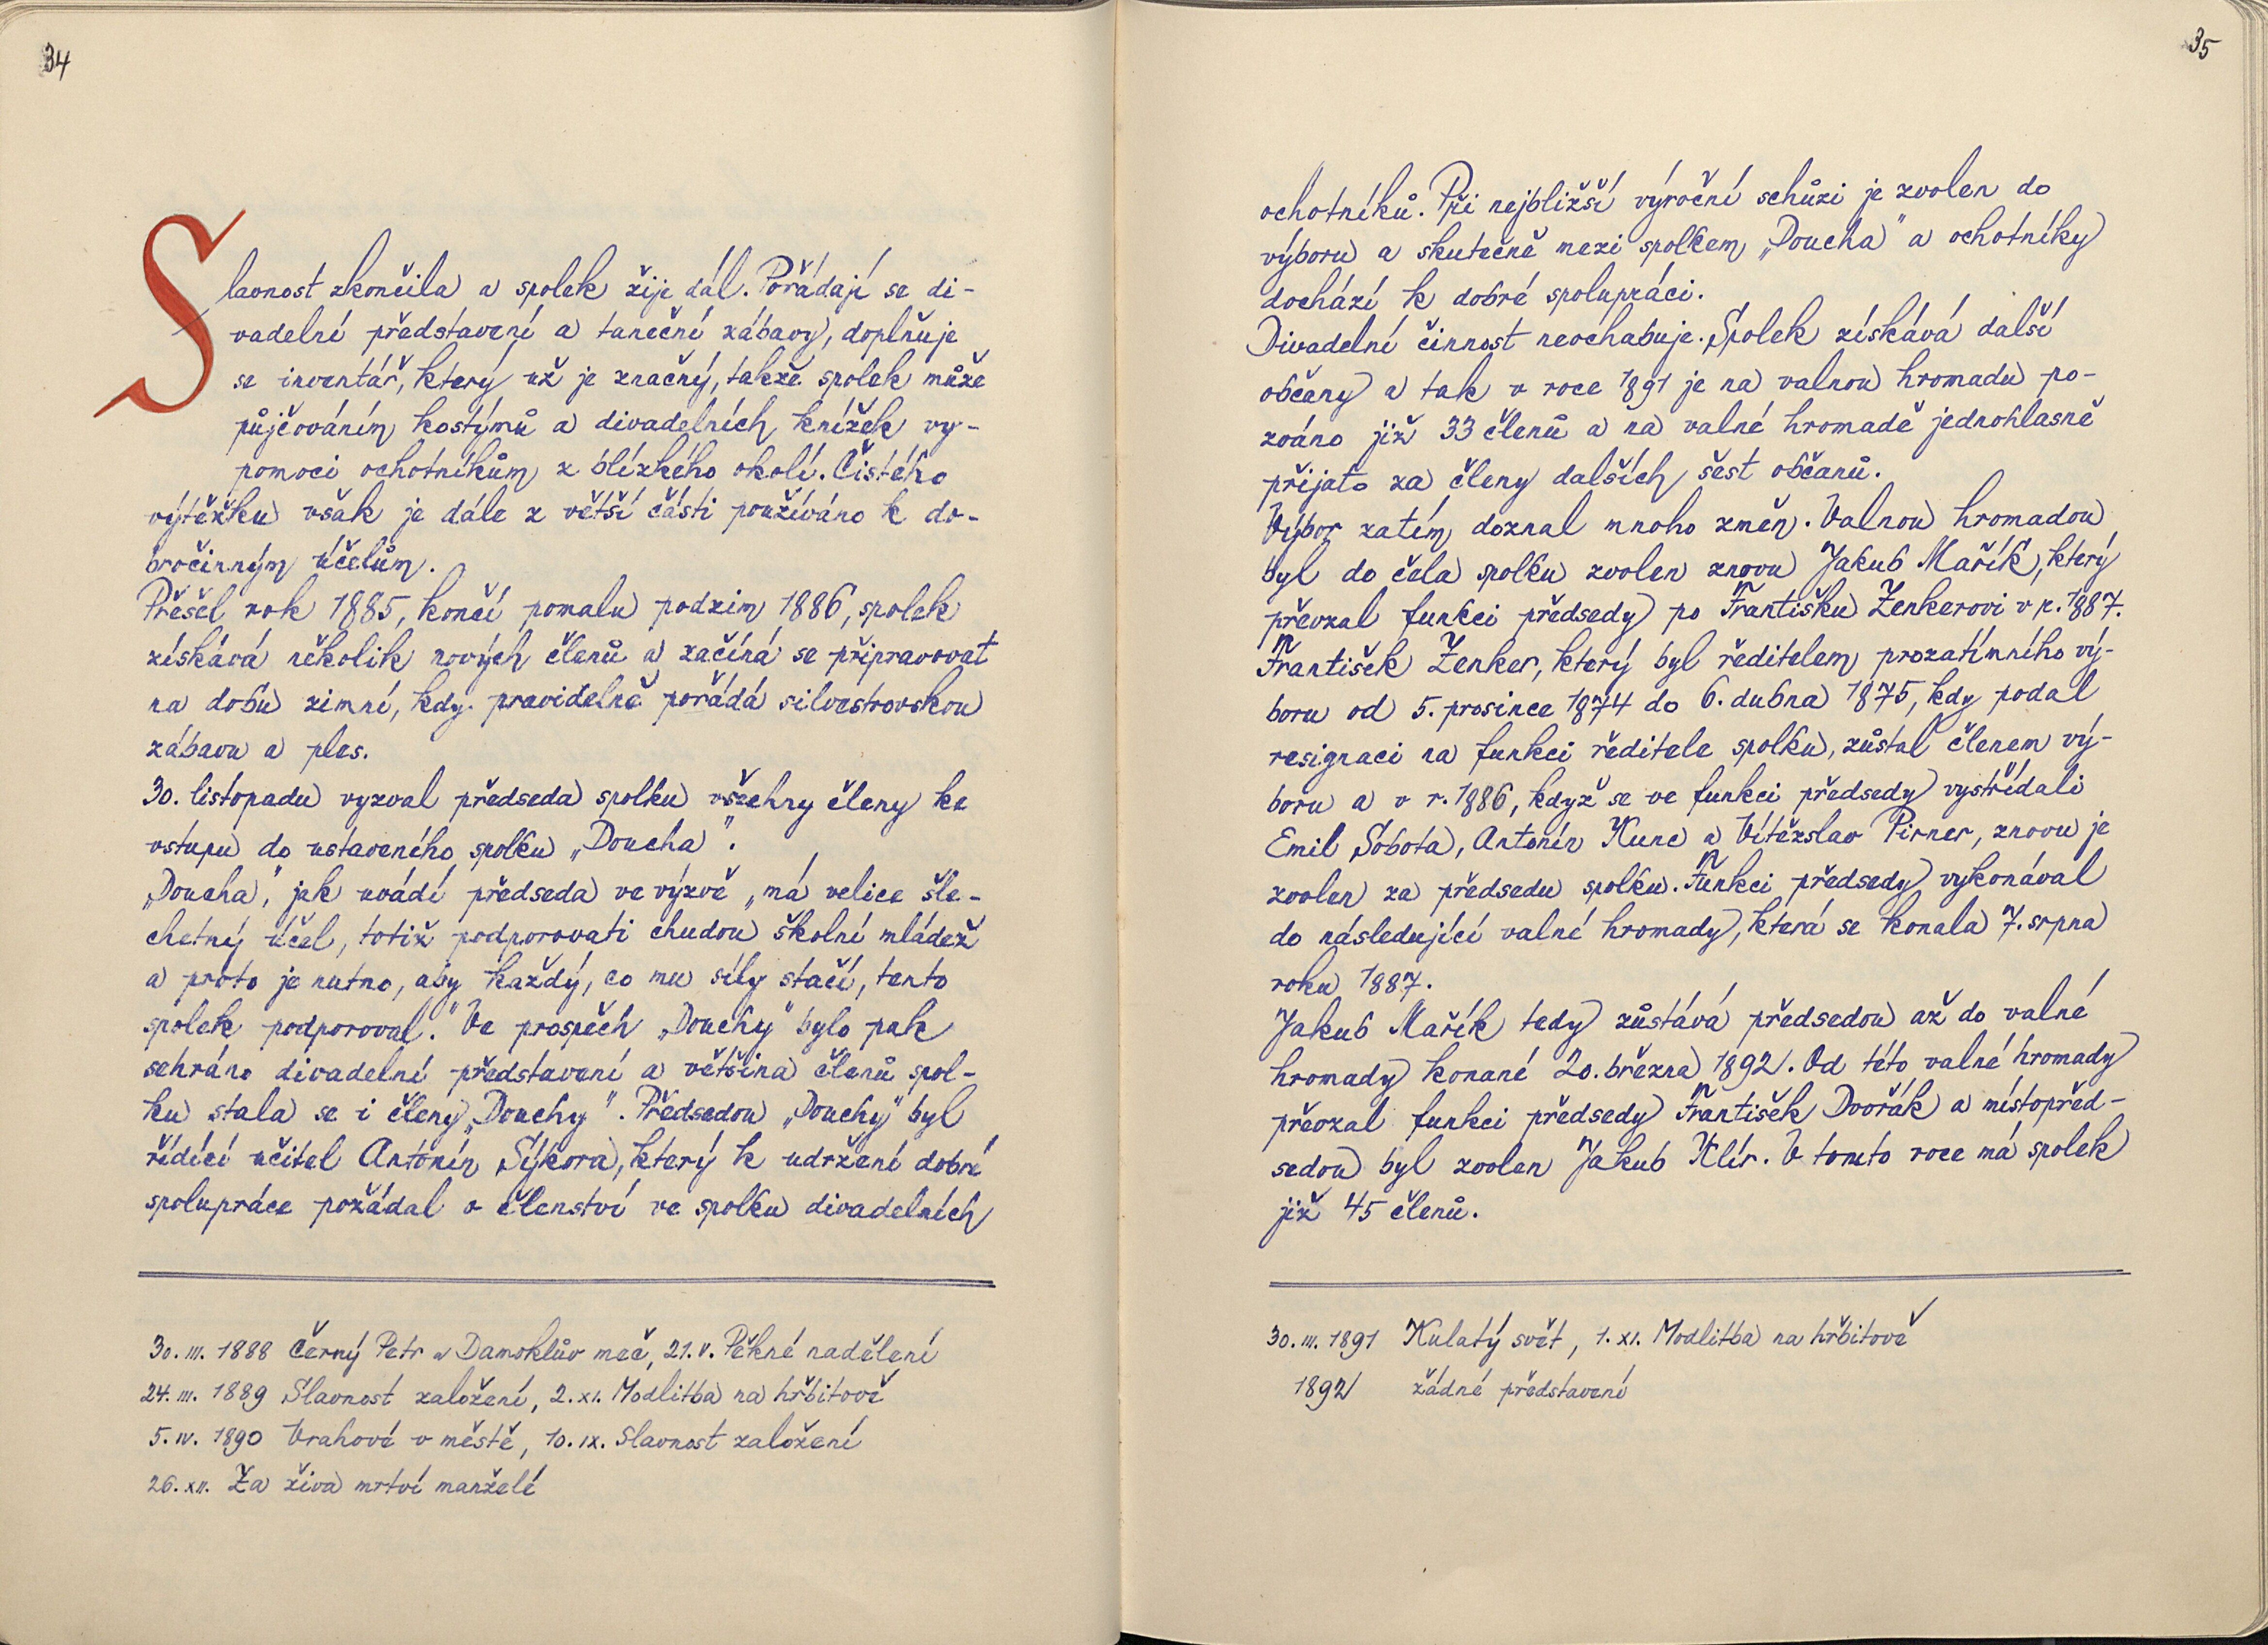 34
Slavnost skončila a spolek žije dál. Pořádají se di-
vadelní představení a taneční zábavy, doplňuje
se inventář, který už je značný, takže spolek může
půjčováním kostýmů a divadelních knížek vy-
pomoci ochotníkům z blízkého okolí. Čistého
výtěžku však je dále z větší části používáno k do-
bročinným účelům.
Přešel rok 1885, končí pomalu podzim 1886, spolek
získává několik nových členů a začíná se připravovat
na dobu zimní, kdy pravidelně pořádá silvestrovskou
zábavu a ples.
30. listopadu vyzval předseda spolku všechny členy ke
vstupu do ustaveného spolku „Doucha".
„Doucha", jak uvádí předseda ve výzvě „má velice šle-
chetný účel, totiž podporovati chudou školní mládež
a proto je nutno, aby každý, co mu síly stačí, tento
spolek podporoval." Ve prospěch „Douchy" bylo pak
sehráno divadelní představení a většina členů spol-
ku stala se i členy „Douchy". Předsedou „Douchy" byl
řídící učitel Antonín Sýkora, který k udržení dobré
spolupráce požádal o členství ve spolku divadelních
30. III. 1888 Černý Petr a Damoklův meč, 21. V. Pěkné nadělení
24. III. 1889 Slavnost založení, 2. XI. Modlitba na hřbitově
5. IV. 1890 Vrahové v městě, 10. IX. Slavnost založení
26. XII. Za živa mrtví manželé
35
ochotníků. Při nejbližší výroční schůzi je zvolen do
výboru a skutečně mezi spolkem „Doucha" a ochotníky
dochází k dobré spolupráci.
Divadelní činnost neochabuje. Spolek získává další
občany a tak v roce 1891 je na valnou hromadu po-
zváno již 33 členů a na valné hromadě jednohlasně
přijato za členy dalších šest občanů.
Výbor zatím doznal mnoho změn. Valnou hromadou
byl do čela spolku zvolen znovu Jakub Mařík, který
převzal funkci předsedy po Františku Zenkerovi v r. 1887.
František Zenker, který byl ředitelem prozatímního vý-
boru od 5. prosince 1874 do 6. dubna 1875, kdy podal
resignaci na funkci ředitele spolku, zůstal členem vý-
boru a v r. 1886, když se ve funkci předsedy vystřídali
Emil Sobota, Antonín Kunc a Vítězslav Pirner, znovu je
zvolen za předsedu spolku. Funkci předsedy vykonával
do následující valné hromady, která se konala 7. srpna
roku 1887.
Jakub Mařík tedy zůstává předsedou až do valné
hromady konané 20. března 1892. Od této valné hromady
převzal funkci předsedy František Dvořák a místopřed-
sedou byl zvolen Jakub Klír. V tomto roce má spolek
již 45 členů.
30. III. 1891 Kulatý svět, 1. XI. Modlitba na hřbitově
1892 žádné představení